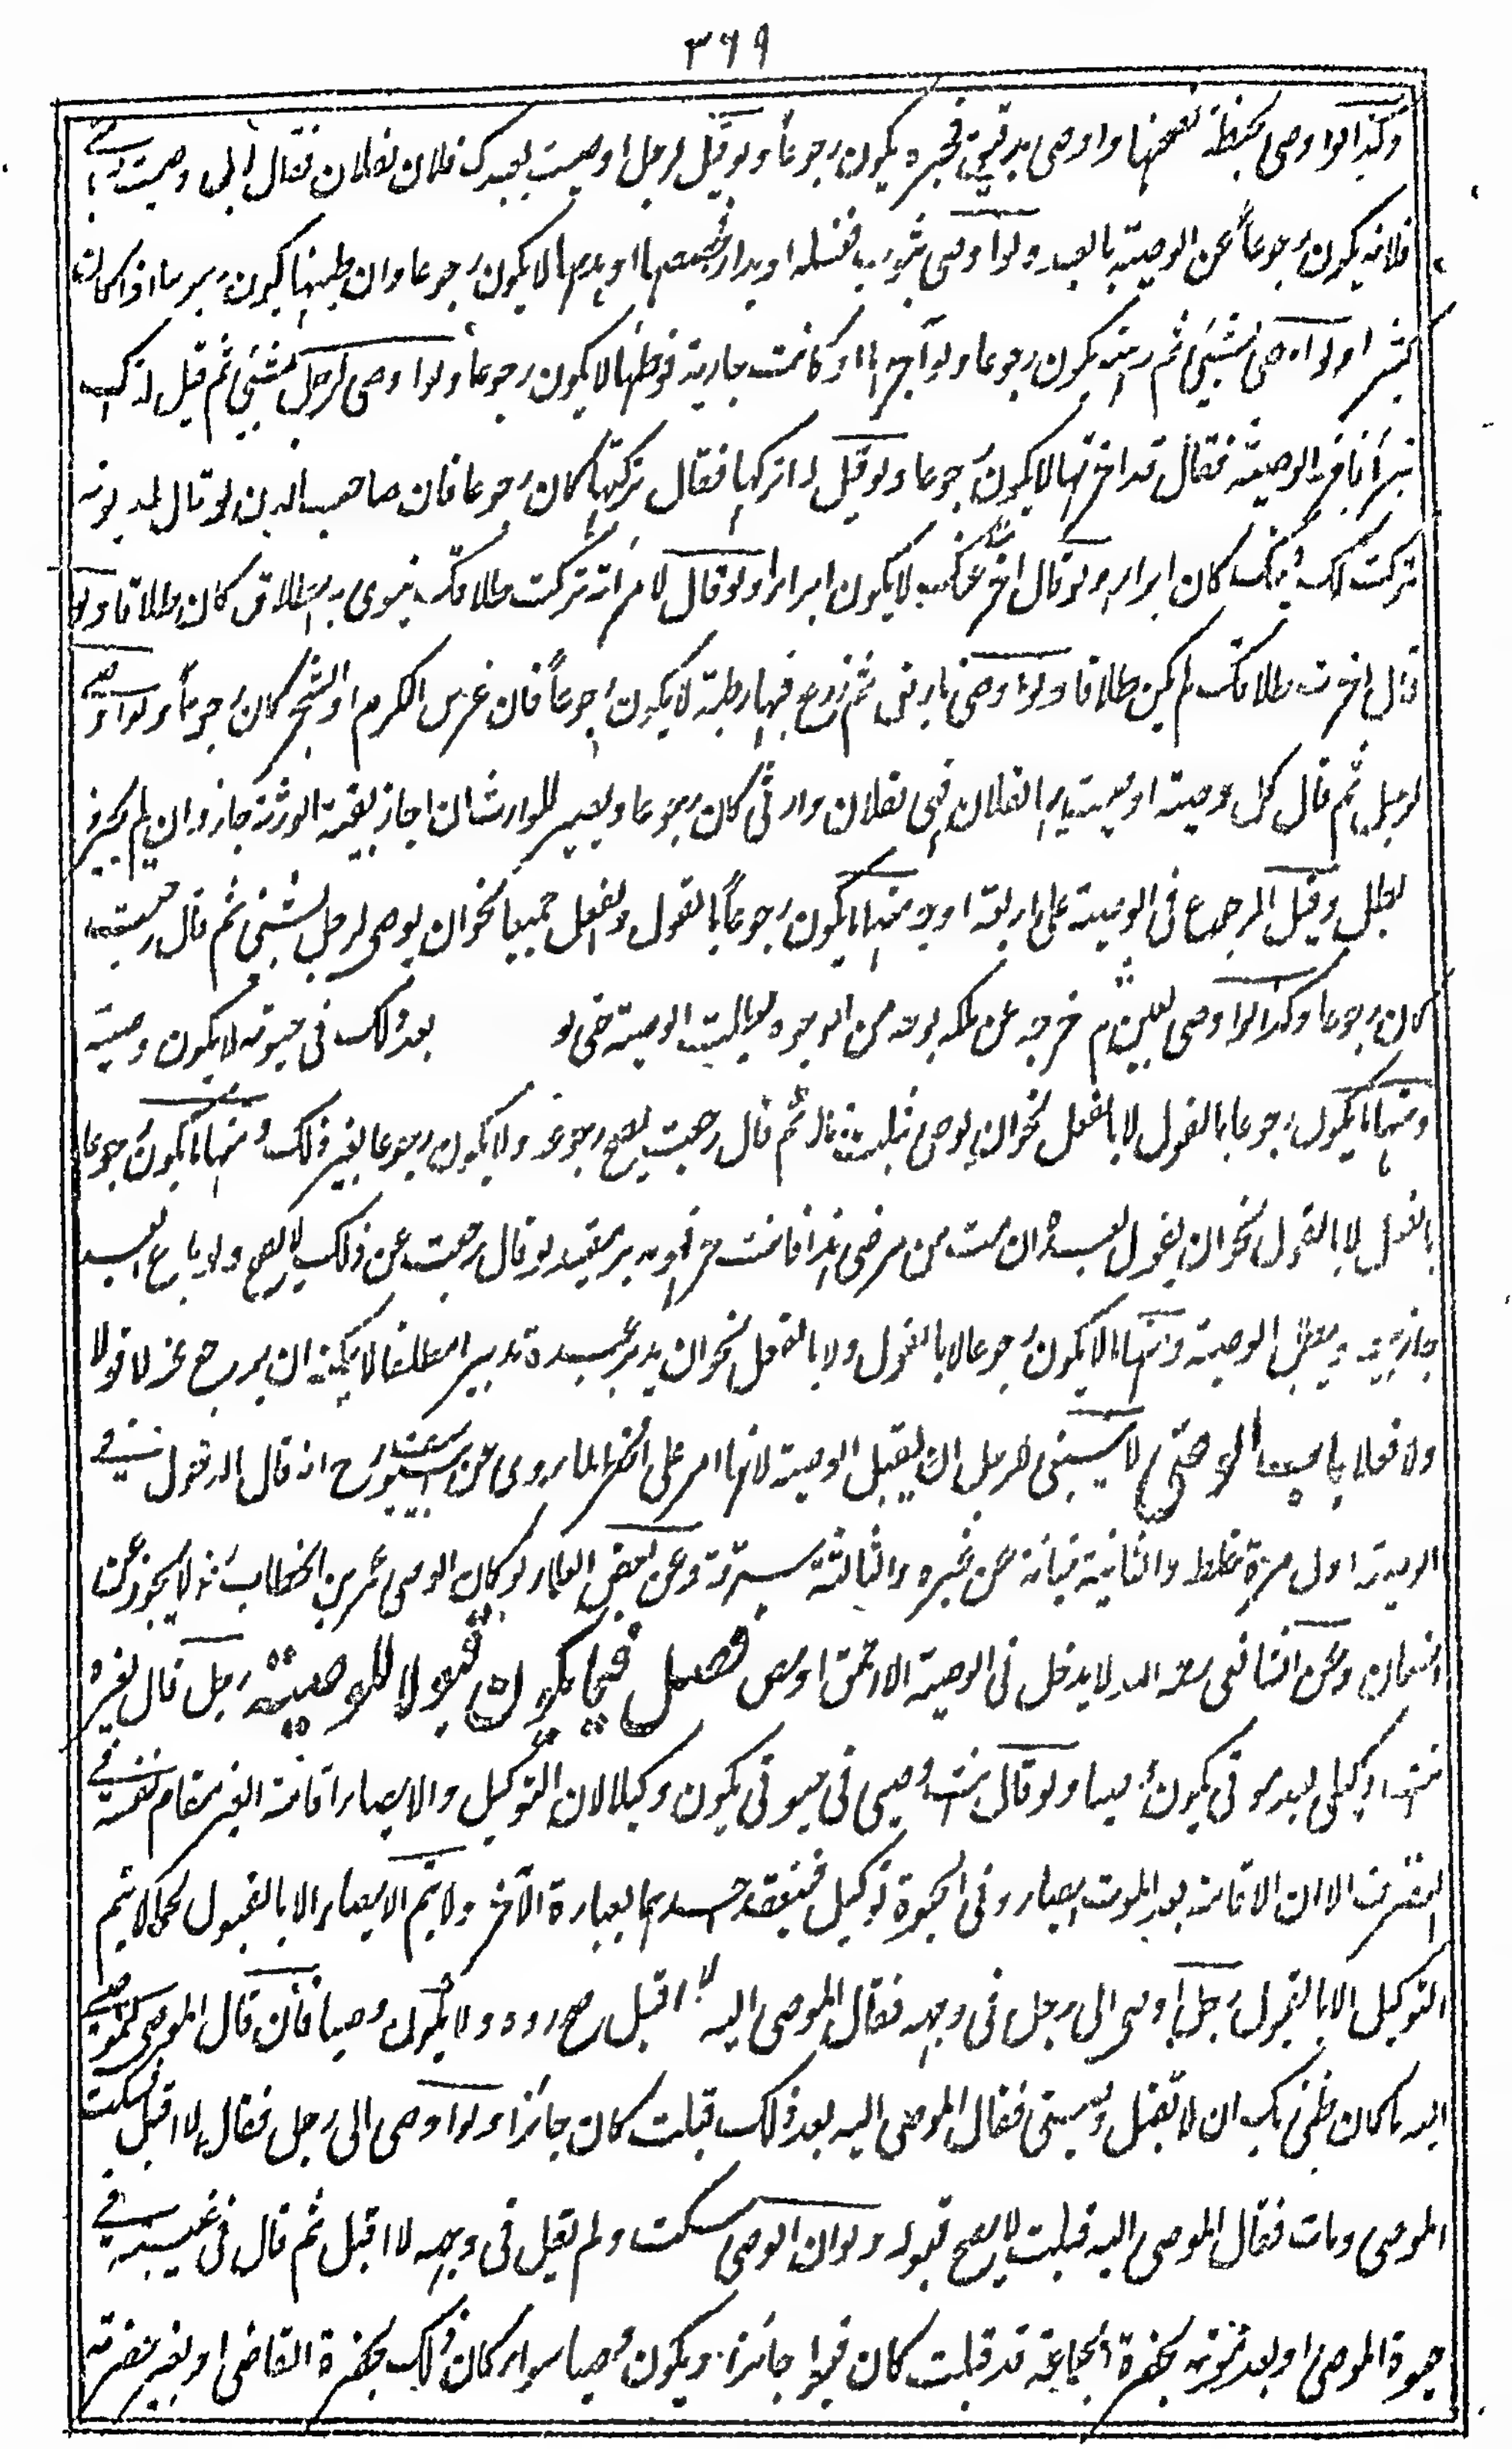 ٣٦٩
وكذا لوا وصى بحنطة فطحنها وا وصى بدقيق فخبزه يكون رجوعاً ولو قيل لرجل اوصيت بعبدك فلان لفلان فقال لا بل وصيت
فلانه يكون رجوعاً عن الوصية بالعبد ولوا وصى بثوب فغسله او بدار فجصصها او هدمها لا يكون رجوعا وان طينها يكون رجوعا اذا كان
كثيرا ولوا وصى بشيئ ثم رهنه يكون رجوعا ولو آجرها او كانت جارية فوطئها لا يكون رجوعاً ولوا وصى لرجل بشيئ ثم قيل له انك
تبرأ فاخر الوصية فقال قد اخرتها لا يكون رجوعا ولو قيل له اتركها فقال تركتها كان رجوعا فان صاحب الدين لو قال لمديونه
تركت لك دينك كان ابراء ولو قال اخرت عنك لا يكون ابراء ولو قال لامرأته تركت طلاقك ينوى به الطلاق كان طلاقا ولو
قال اخرت طلاقك لم يكن طلاقا ولوا وصى بارض ثم زرع فيها رطبة لا يكون رجوعاً فان غرس الكرم او الشجر كان رجوعاً ولوا وصى
لرجل ثم قال كل وصية اوصيت بها لفلان فهى لفلان وارثى كان رجوعا ويصير للوارث ان اجاز بقية الورثة جاز وان لم يجيزوا
بطل وقيل الرجوع فى الوصية على اربعة اوجه منها ما يكون رجوعاً بالقول والفعل جميعا نحو ان يوصى لرجل بشيئ ثم قال رجعت
كان رجوعا وكذا لوا وصى بعين ثم اخرجه عن ملكه بوجه من الوجوه بطلت الوصية حتى لو بعد ذلك فى حيوته لا يكون وصية
ومنها ما يكون رجوعا بالقول لا بالفعل نحو ان يوصى بثلث ماله ثم قال رجعت يصح رجوعه ولا يكون رجوعا بغير ذلك ومنها ما يكون رجوعا
بالفعل لا بالقول نحو ان يقول لعبده ان مت من مرضى هذا فانت حر فهو مدبر مقيد لو قال رجعت عن ذلك لا يصح ولو باع العبد
جاز بيعه ويبطل الوصية ومنها ما لا يكون رجوعا لا بالقول ولا بالفعل نحو ان يدبر عبده تدبيرا مطلقا لا يمكنه ان يرجع عنه لا قولا
ولا فعلا باب الوصى لا ينبغى للرجل ان يقبل الوصية لانها امر على الخطر لما روى عن ابى يوسف رح انه قال الدخول فى
الوصية اول مرة غلط والثانية خيانة عن غيره والثالثة سرقة وعن بعض العلماء لو كان الوصى عمر بن الخطاب رضه لا يجوز عن
الضمان وعن الشافعى رحمه الله لا يدخل فى الوصية الا احمق او لص فصل فيما يكون قبولا للوصية رجل قال لغيره
انت وكيلى بعد موتى يكون وصيا ولو قال انت وصيى فى حيوتى يكون وكيلا لان التوكيل والايصاء اقامة الغير مقام نفسه فى
التصرف الا ان الاقامة بعد الموت ايصاء وفى الحيوة توكيل فينعقد احدهما بعبارة الآخر ولا يتم الايصاء الا بالقبول كما لا يتم
التوكيل الا بالقبول رجل اوصى الى رجل فى وجهه فقال الموصى اليه لا اقبل صح رده ولا يكون وصيا فان قال الموصى للموصى
اليه ما كان ظنى بك ان لا تقبل وصيتى فقال الموصى اليه بعد ذلك قبلت كان جائزا ولوا وصى الى رجل فقال لا اقبل فسكت
الموصى ومات فقال الموصى اليه قبلت لا يصح قبوله ولو ان الوصى سكت ولم يقل فى وجهه لا اقبل ثم قال فى غيبته فى
حيوة الموصى او بعد موته بحضرة الجماعة قد قبلت كان قبولا جائزا ويكون وصيا سواء كان ذلك بحضرة القاضى او بغير حضرته